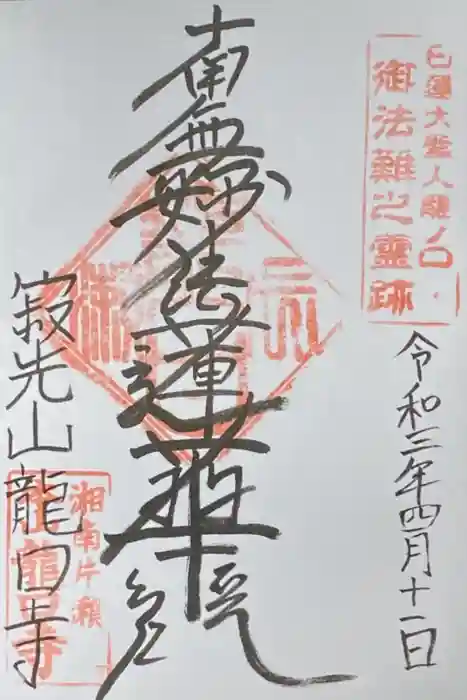 日蓮大聖人龍ノ口
御法難之霊跡
令和三年四月十一日
南無妙法蓮華経
寂光山龍口寺
湘南片瀬
龍口寺